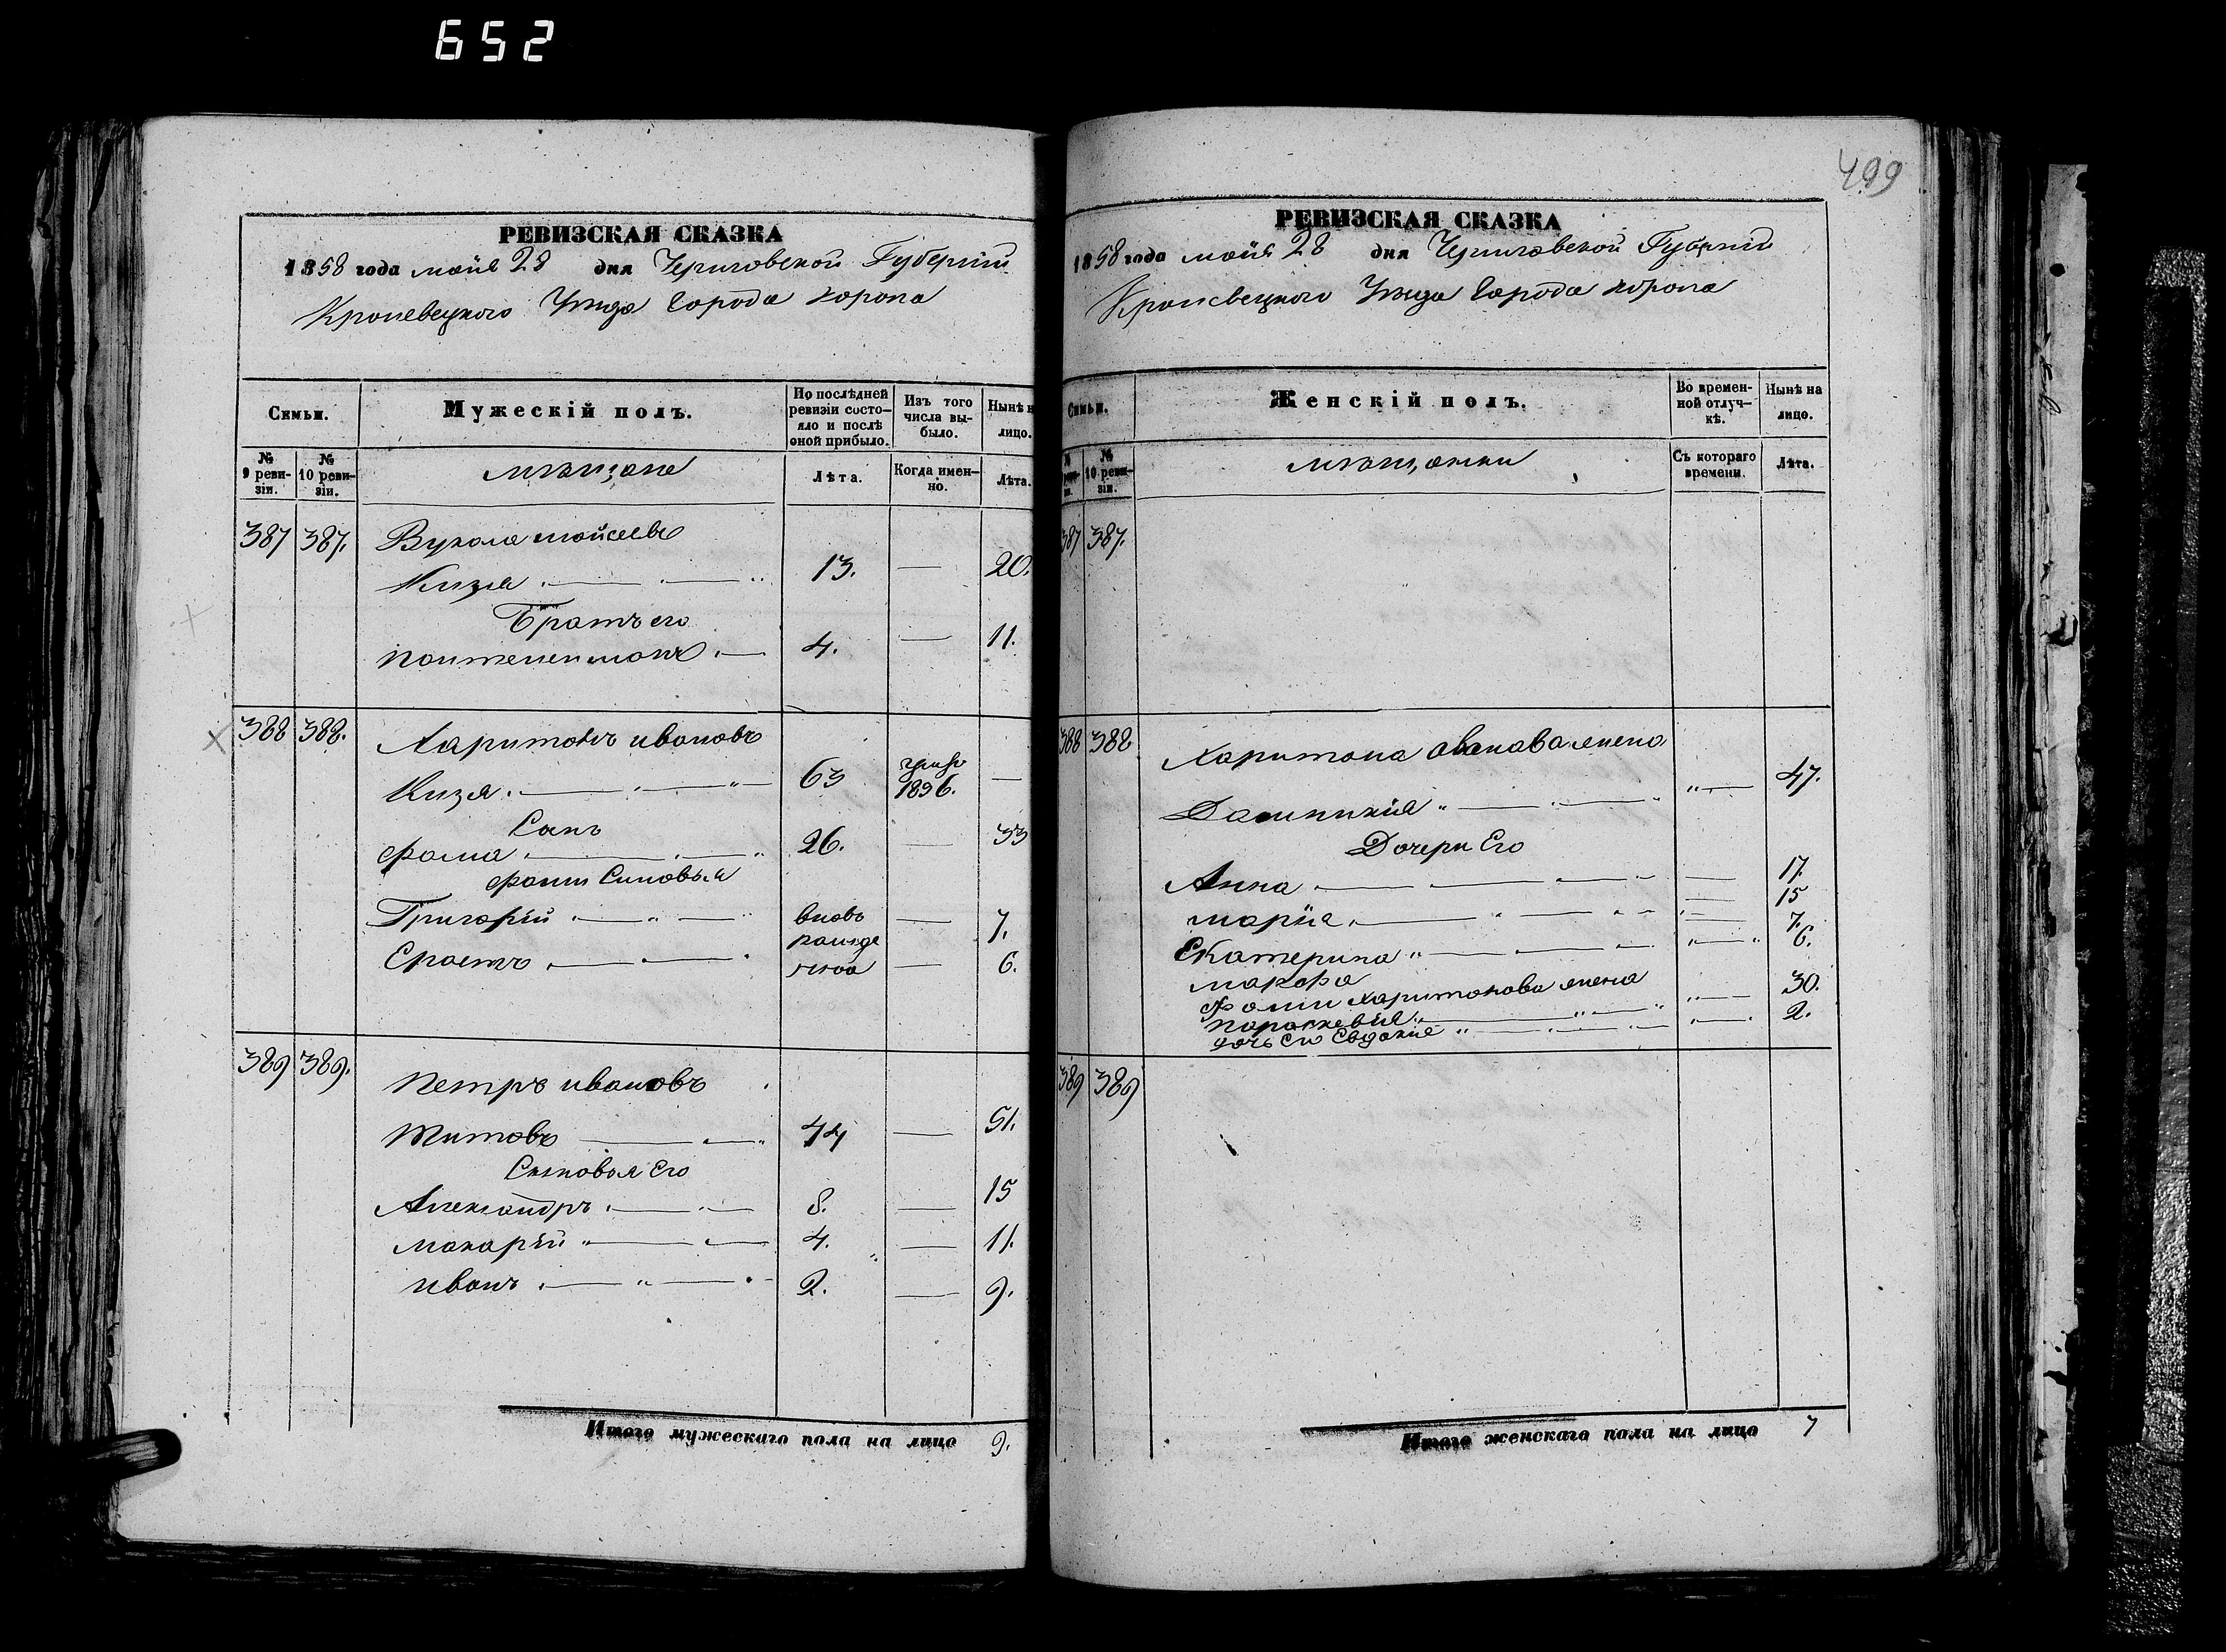 652
499
РЕВИЗСКАЯ СКАЗКА
1858 года мая 28 дня Черниговской Губернии
Кролевецкого Уезда города Коропа
Семьи.
Мужескій полъ.
По послѣдней ревизіи состояло и послѣ оной прибыло.
Изъ того числа выбыло.
Нынѣ на лицо.
№ 9 ревизіи.
№ 10 ревизіи.
мѣщане
Лѣта.
Когда именно.
Лѣта.
387 387. Вукола Мойсеевъ
Кизя 13. — 20.
Братъ его
Пантелеимонъ 4. — 11.
388 388. Харитонъ Ивановъ
Кизя 63 1856. —
Сынъ
Фома 26. — 33
Фоми Синовья
Григорій вновь — 7.
рожде
Ерастъ нноа — 6.
389 389. Петръ Ивановъ
Титовъ 44 — 51.
Сыновья Его
Александръ 8. — 15
Макарій 4. — 11.
Иванъ 2. — 9.
Итого мужескаго пола на лицо 9.
РЕВИЗСКАЯ СКАЗКА
1858 года мая 28 дня Черниговской Губернии
Кролевецкого Уезда города Коропа
Семьи.
Женскій полъ.
Во временной отлучкѣ.
Нынѣ на лицо.
№ 10 ревизіи.
мѣщанки
Съ котораго времени.
Лѣта.
387 387.
388 388 Харитона Иванова жена
47.
Дочери Его
Анна — 17.
Марія — 15
Екатерина 7.
Марфа 6.
Фоми Харитонова жена
Параскевія 30.
дочь Ею Евдокия 2.
389 389
Итого женскаго пола на лицо 7